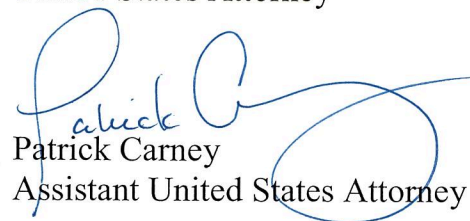 States Attorney
Patrick C
Patrick Carney
Assistant United States Attorney